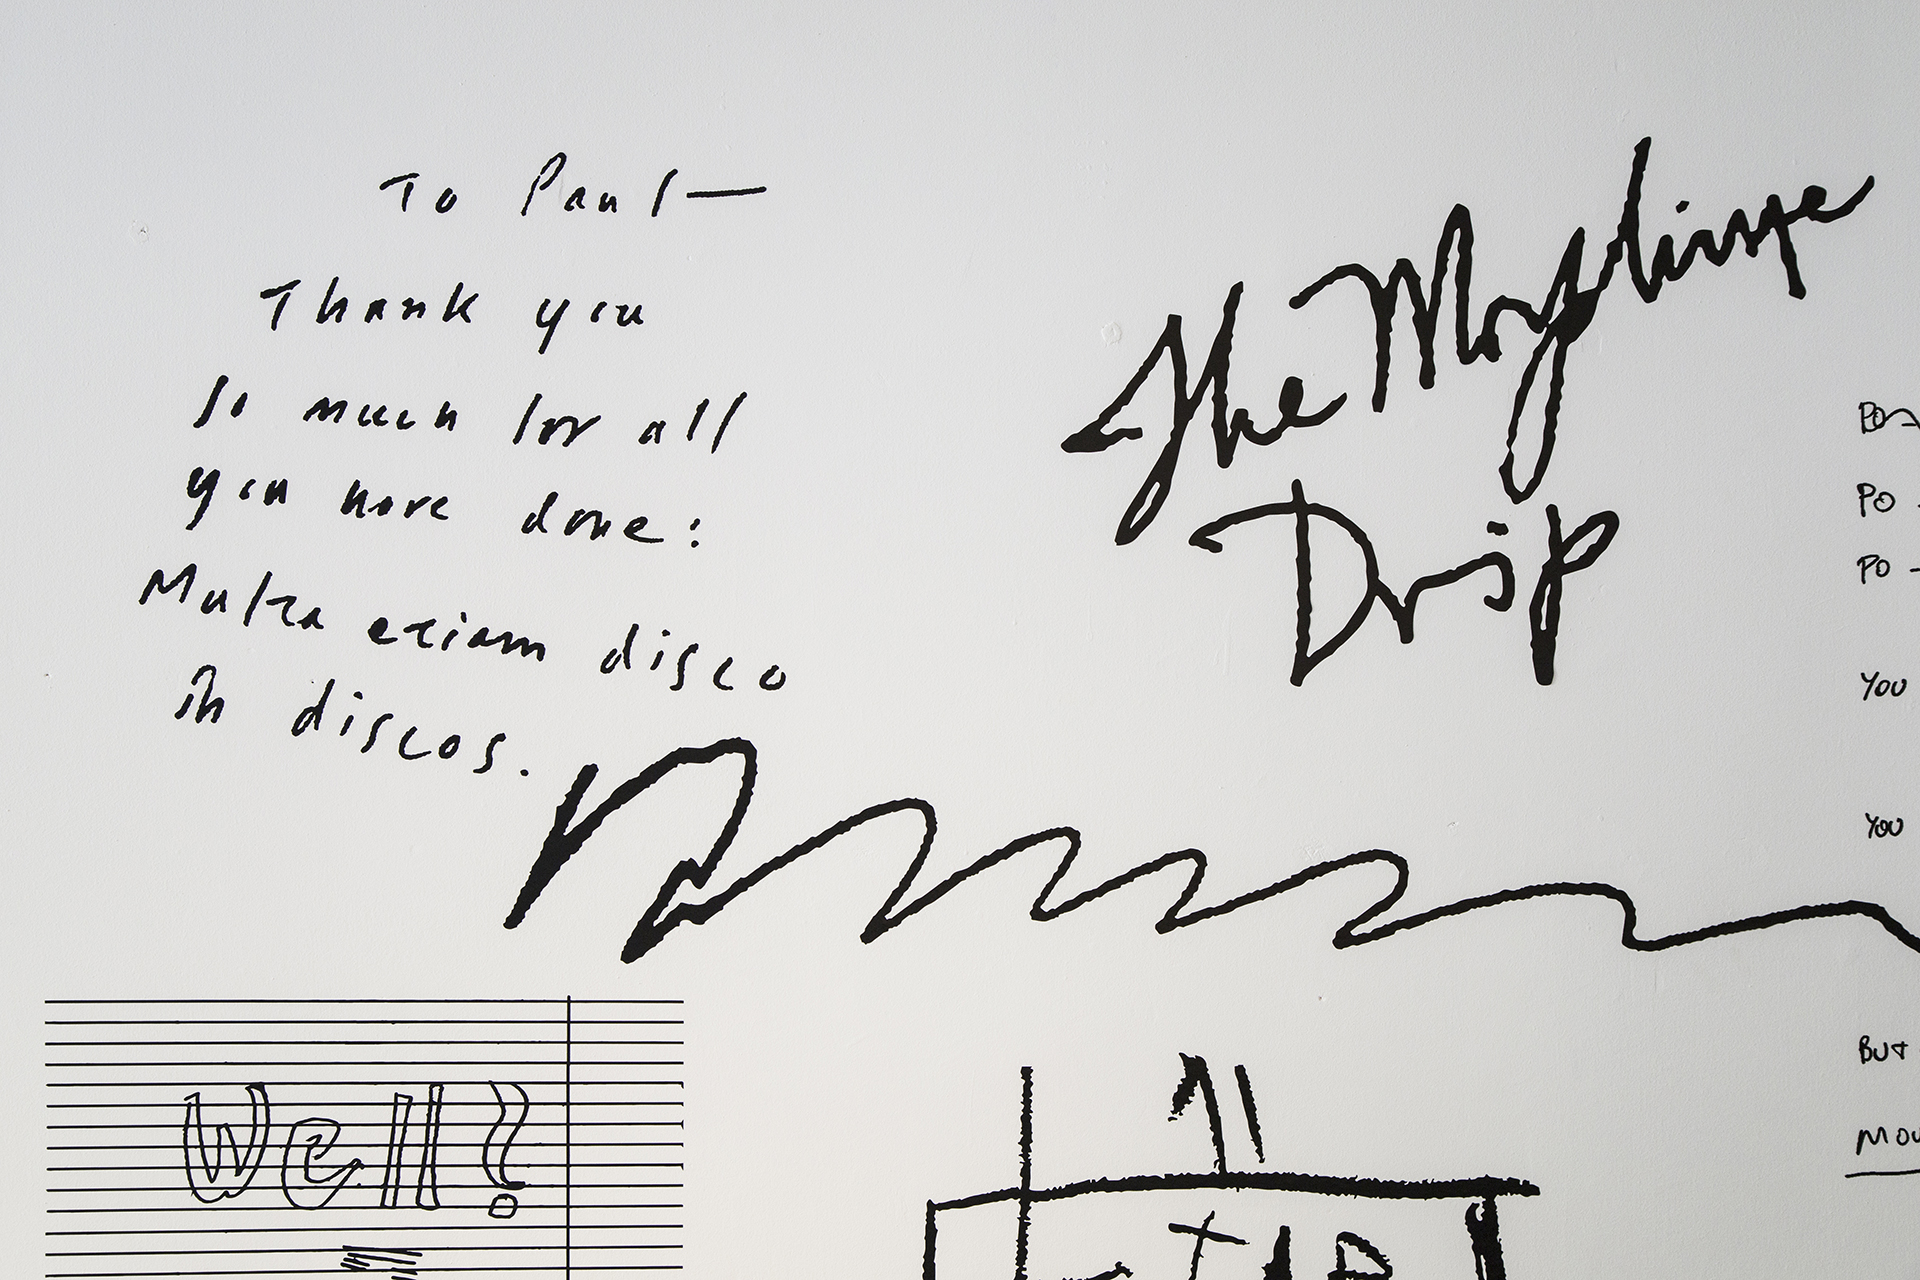 To Paul—
Thank you
so much for all
you have done:
Multa etiam disco
in discos.
The
Drip
Well?
PO
PO
YOU
YOU
BUT